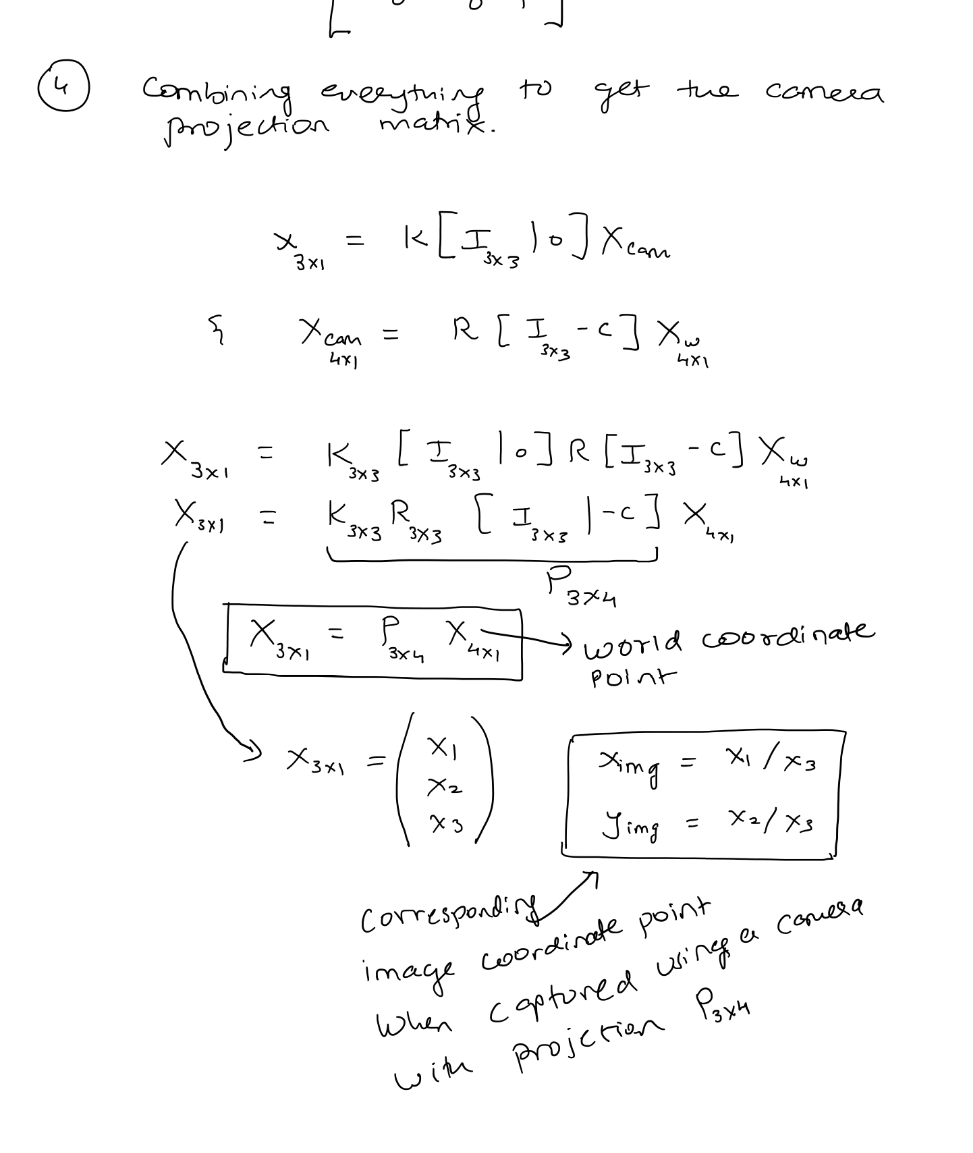 4 Combining everything to get the camera
projection matrix.
x_{3×1} = K [I_{3×3} | 0] X_{cam}
& X_{cam 4×1} = R [I_{3×3} -C] X_{w 4×1}
X_{3×1} = K_{3×3} [I_{3×3} | 0] R [I_{3×3} -C] X_{w 4×1}
X_{3×1} = K_{3×3} R_{3×3} [I_{3×3} | -C] X_{4×1}
P_{3×4}
X_{3×1} = P_{3×4} X_{4×1} → world coordinate
Point
X_{3×1} = (x_1
x_2
x_3)
x_{img} = x_1 / x_3
y_{img} = x_2 / x_3
corresponding
image coordinate point
when captured using a camera
with projection P_{3×4}